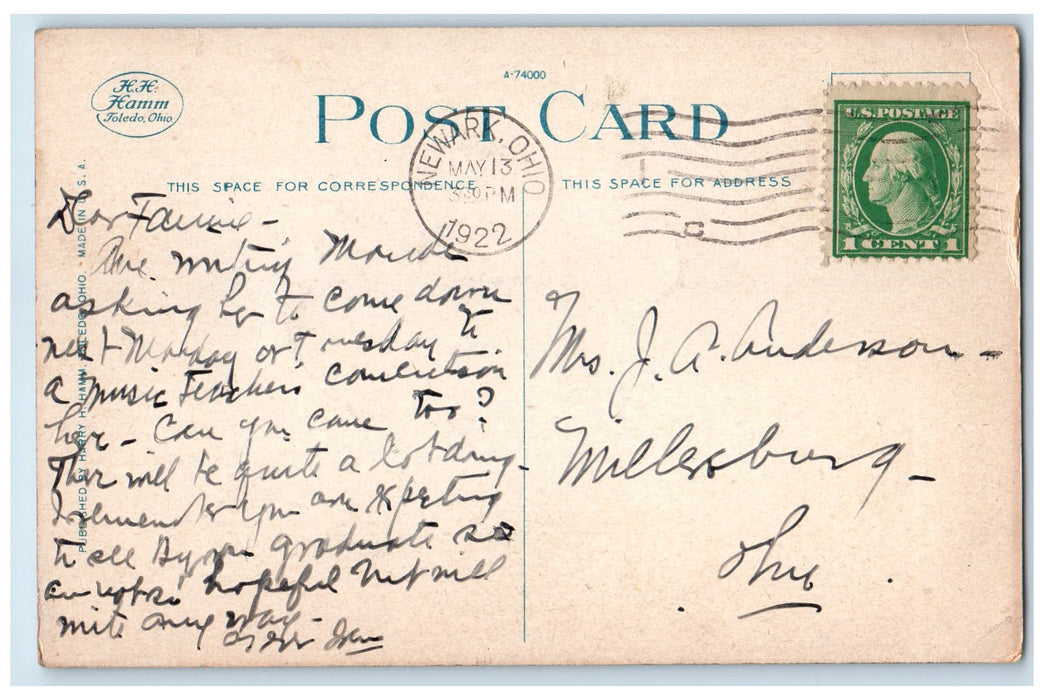 H.H.
Hamm
Toledo, Ohio
A-74000
POST CARD
THIS SPACE FOR CORRESPONDENCE
THIS SPACE FOR ADDRESS
NEWARK, OHIO
MAY 13
PM
1922
U.S. POSTAGE
1 CENT 1
PUBLISHED BY HARRY H. HAMM, TOLEDO, OHIO - MADE IN U.S.A.
Dear Fannie -
Am writing
asking her to come down
next Monday or Tuesday to
a music Teachers convention
here - Can you come too?
There will be quite a lot doing -
I remember you are expecting
to see Byron graduate so
am not so hopeful but will
write any way -
Mrs. J. A. Anderson -
Millersburg -
Ohio